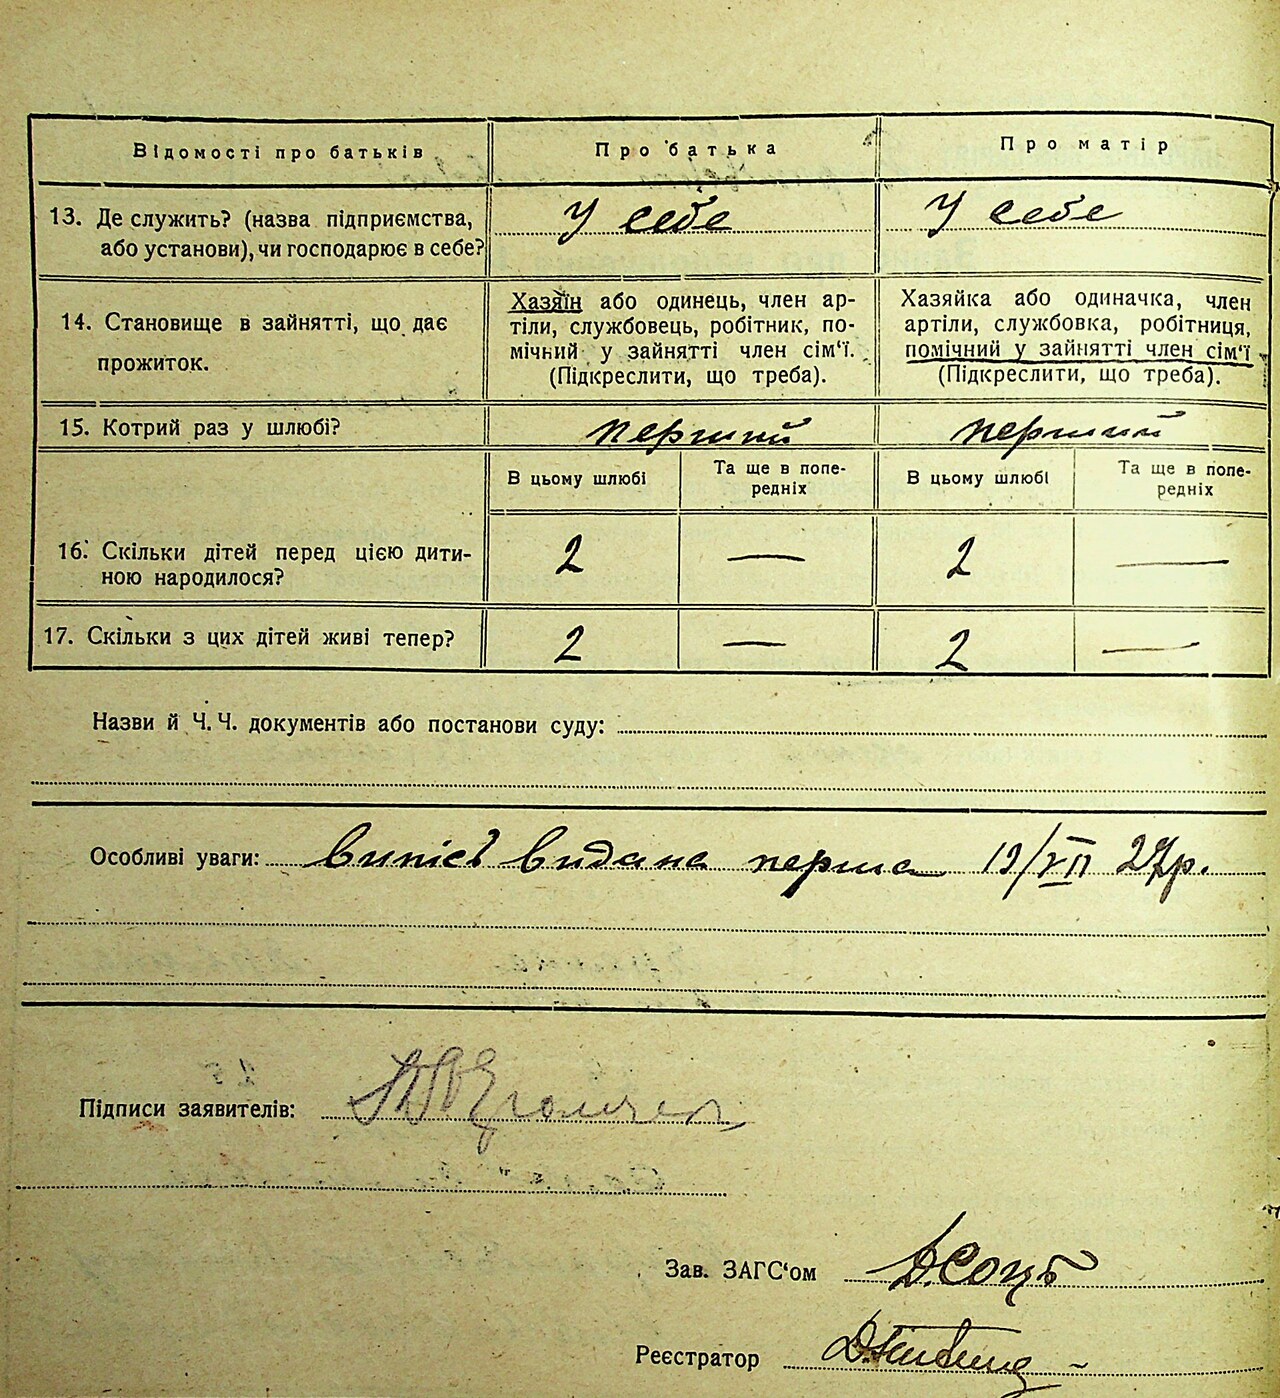 Відомості про батьків
Про батька
Про матір
13. Де служить? (назва підприємства,
або установи), чи господарює в себе?
У себе
У себе
14. Становище в зайнятті, що дає
прожиток.
Хазяїн або одинець, член ар-
тіли, службовець, робітник, по-
мічний у зайнятті член сім‘ї.
(Підкреслити, що треба).
Хазяйка або одиначка, член
артіли, службовка, робітниця,
помічний у зайнятті член сім‘ї
(Підкреслити, що треба).
15. Котрий раз у шлюбі?
перший
перший
В цьому шлюбі
Та ще в попе-
редніх
В цьому шлюбі
Та ще в попе-
редніх
16. Скільки дітей перед цією дити-
ною народилося?
2 — 2 —
17. Скільки з цих дітей живі тепер?
2 — 2 —
Назви й Ч. Ч. документів або постанови суду:
Особливі уваги: Випісь видана перша 19/VII 27р.
Підписи заявителів:
Зав. ЗАГС‘ом
Реєстратор